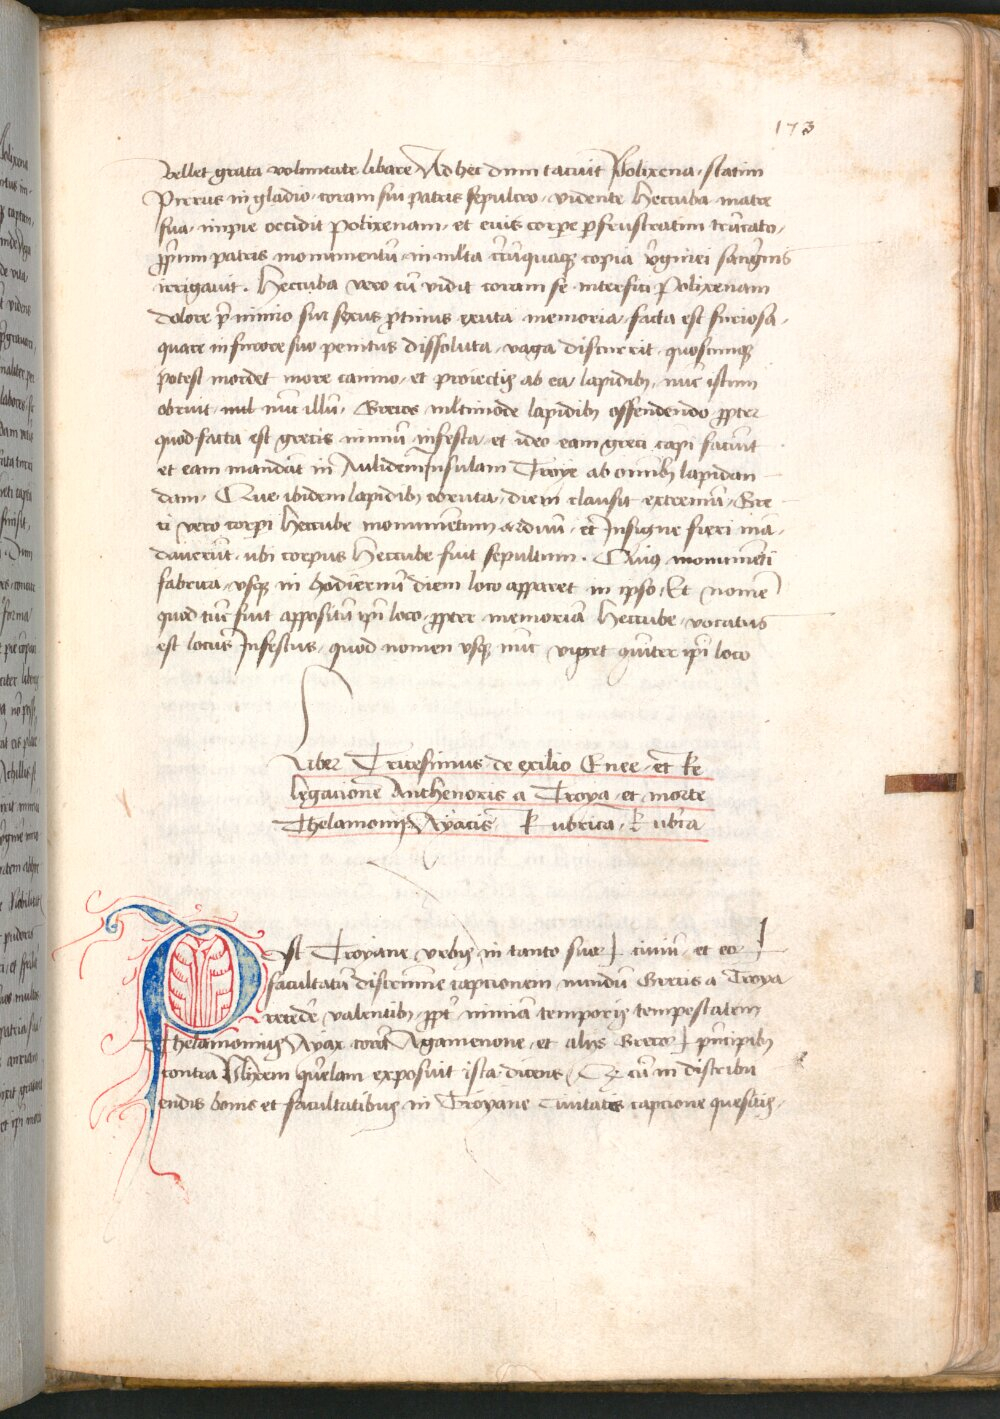 173
Vellet grata voluntate libare Ad hec dum tacuit Polixena, statim
Pirrus in gladio, coram sui patris sepulcro, vidente Heccuba matre
sua, impie occidit Polixenam, et eius corpe p frustratim trucato,
ipsum patris monumentū in multa cruquaqꝫ copia v̄ginei sangnis
irrigauit. Heccuba vero cū vidit coram se interfici Polixenam
dolore p̄ nimio sui sexus p̄tinus exuta memoria, facta est furiosa,
quare in furore suo penitus dissoluta, vaga discurrit, quoscunqꝫ
potest mordet more canino, et proiectis ab ea, lapidibꝫ, nūc istum
obruit, nūc illū, Grecos multimode lapidibꝫ offendendo ꝓpter
quod facta est grecis nimiū infesta, et ideo eam greci capi faciūt
et eam mandāt in Aulidem Insulam Troye ab omnibꝫ lapidan
dam, Que ibidem lapidibꝫ obruta, diem clausit extremū, Gre
ci vero corpi Heccube monumentum arduū, et Insigne fieri mā,
daverūt, ubi corpus Heccube fuit sepultum. Cuiꝰ monumēti
fabrica, usqꝫ in hodiernū diem loco apparet in ipso, Et nomē
quod tūc fuit appositū ipī loco ꝓpter memoriā Heccube, vocatus
est locus Infestus, quod nomen usqꝫ nūc viget q̄niter ipī loco
Liber Tricesimus de exilio Enee, et Re
legatione Anthenoris a Troya et morte
Thelamonis Ayacis Rubrica, Rubrica
Post Troyane vrbis in tanto suoꝝ ciuiū, et eoꝝ
facultatū discrimine captionem, nundū Grecis a Troya
recedē valentibꝫ ꝓpt̄ nimiam temporis tempestatem
Thelamonius Ayax corā Agamenone, et aliis Grecoꝝ principibꝫ
contra Ulixem q̄relam exposuit ista dicens, Qꝫ cū in distribu
endis bonis et facultatibus in Troyane Ciuitatis captione quesitis,